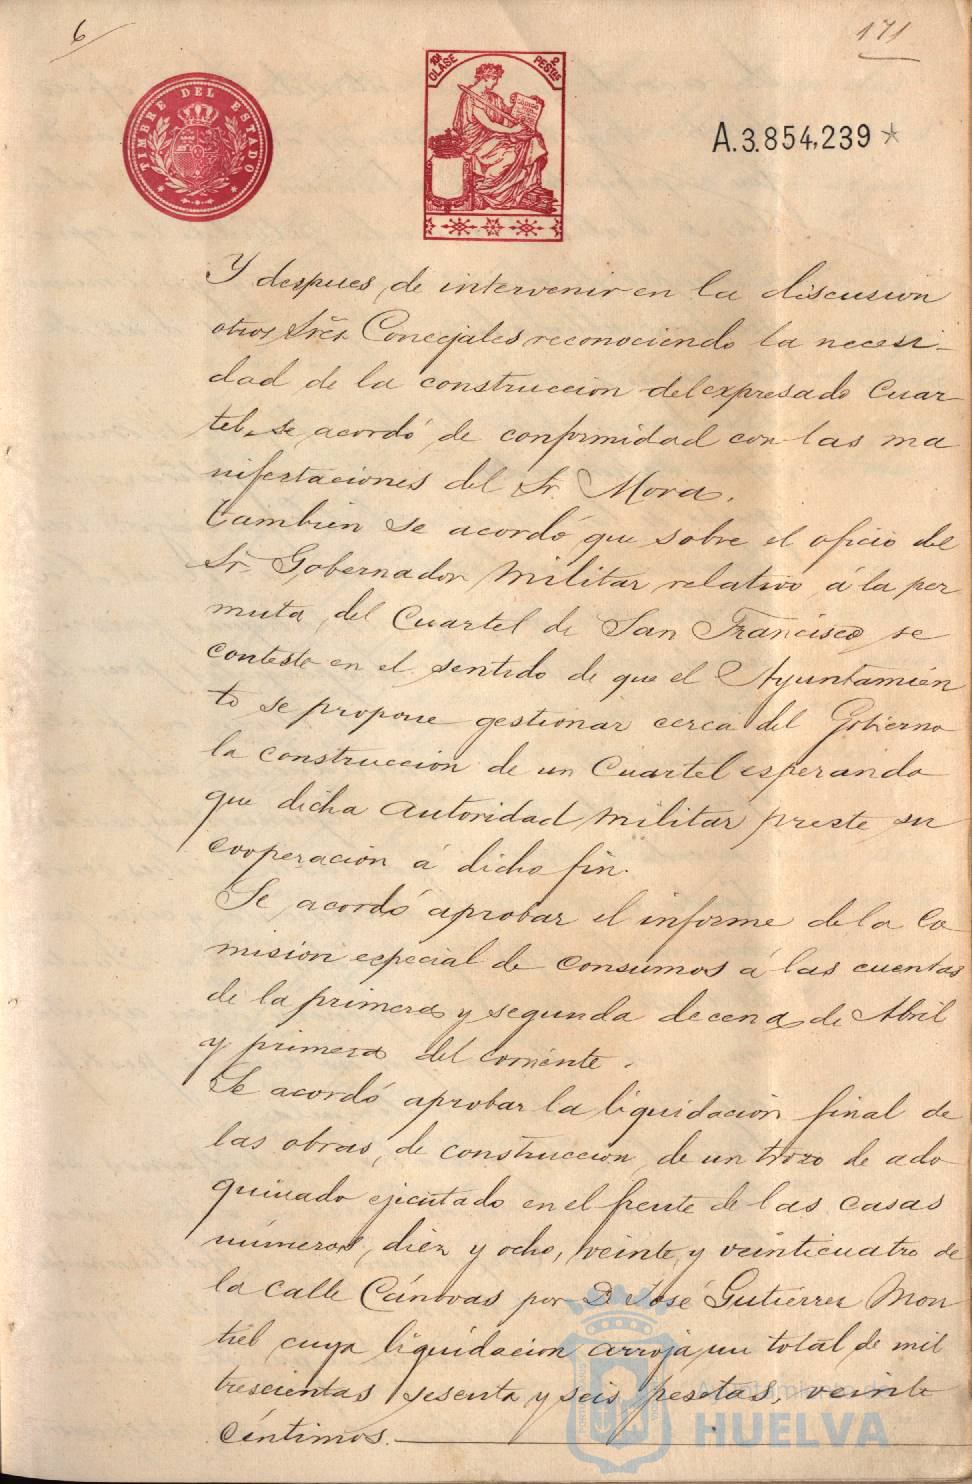 6 171
TIMBRE DEL ESTADO
10ª CLASE 2 PESETAS
CÓDIGO
A.3.854,239*
Y despues de intervenir en la discusion
otros Sres. Concejales reconociendo la necesi-
dad de la construccion del expresado Cuar-
tel, se acordó de conformidad con las ma
nifestaciones del Sr. Mora.
Tambien se acordó que sobre el oficio del
Sr. Gobernador Militar relativo á la per
muta del Cuartel de San Francisco se
conteste en el sentido de que el Ayuntamien
to se propone gestionar cerca del Gobierno
la construccion de un Cuartel esperando
que dicha autoridad militar preste su
cooperación á dicho fin.
Se acordó aprobar el informe de la Co
mision especial de Consumos á las cuentas
de la primera y segunda decena de Abril
y primera del corriente.
Se acordó aprobar la liquidacion final de
las obras de construccion de un trozo de ado
quinado ejecutado en el frente de las casas
números, diez y ocho, veinte y veinticuatro de
la calle Cánovas por D. José Gutierrez Mon
tiel cuya liquidacion arroja un total de mil
trescientas sesenta y seis pesetas, veinte
céntimos.
Ayuntamiento de
HUELVA